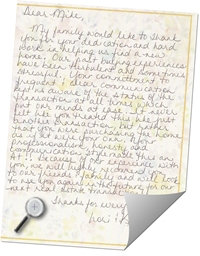 Dear Mike,
My family would like to thank
you for your dedication and hard
work in helping us find a new
home. Our last buying experiences
have been turbulent and sometimes
stressful. Your commitment to
frequent & clear communication
kept us aware of the status of the
transaction at all times which
put our minds at ease. I never
felt like you treated this like just
another transaction, but rather
that you were purchasing the home
as if it were your own. Your
professionalism, honesty and
communication style made this an
A+!! Because of our experience with
you, we will highly recommend you
to our friends & family and will look
to use you again in the future for our
next real estate transaction.
Thanks for every
Lori &